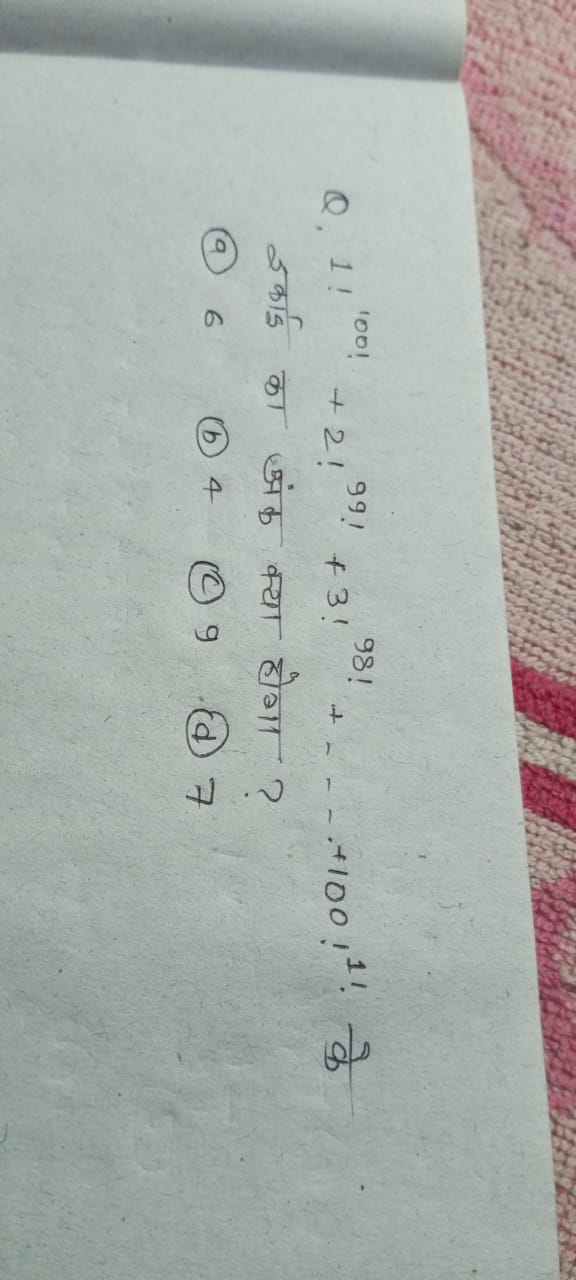 Q. 1!^100! + 2!^99! + 3!^98! + - - - - .+100!^1! के
इकाई का अंक क्या होगा ?
ⓐ 6 ⓑ 4 ⓒ 9 ⓓ 7